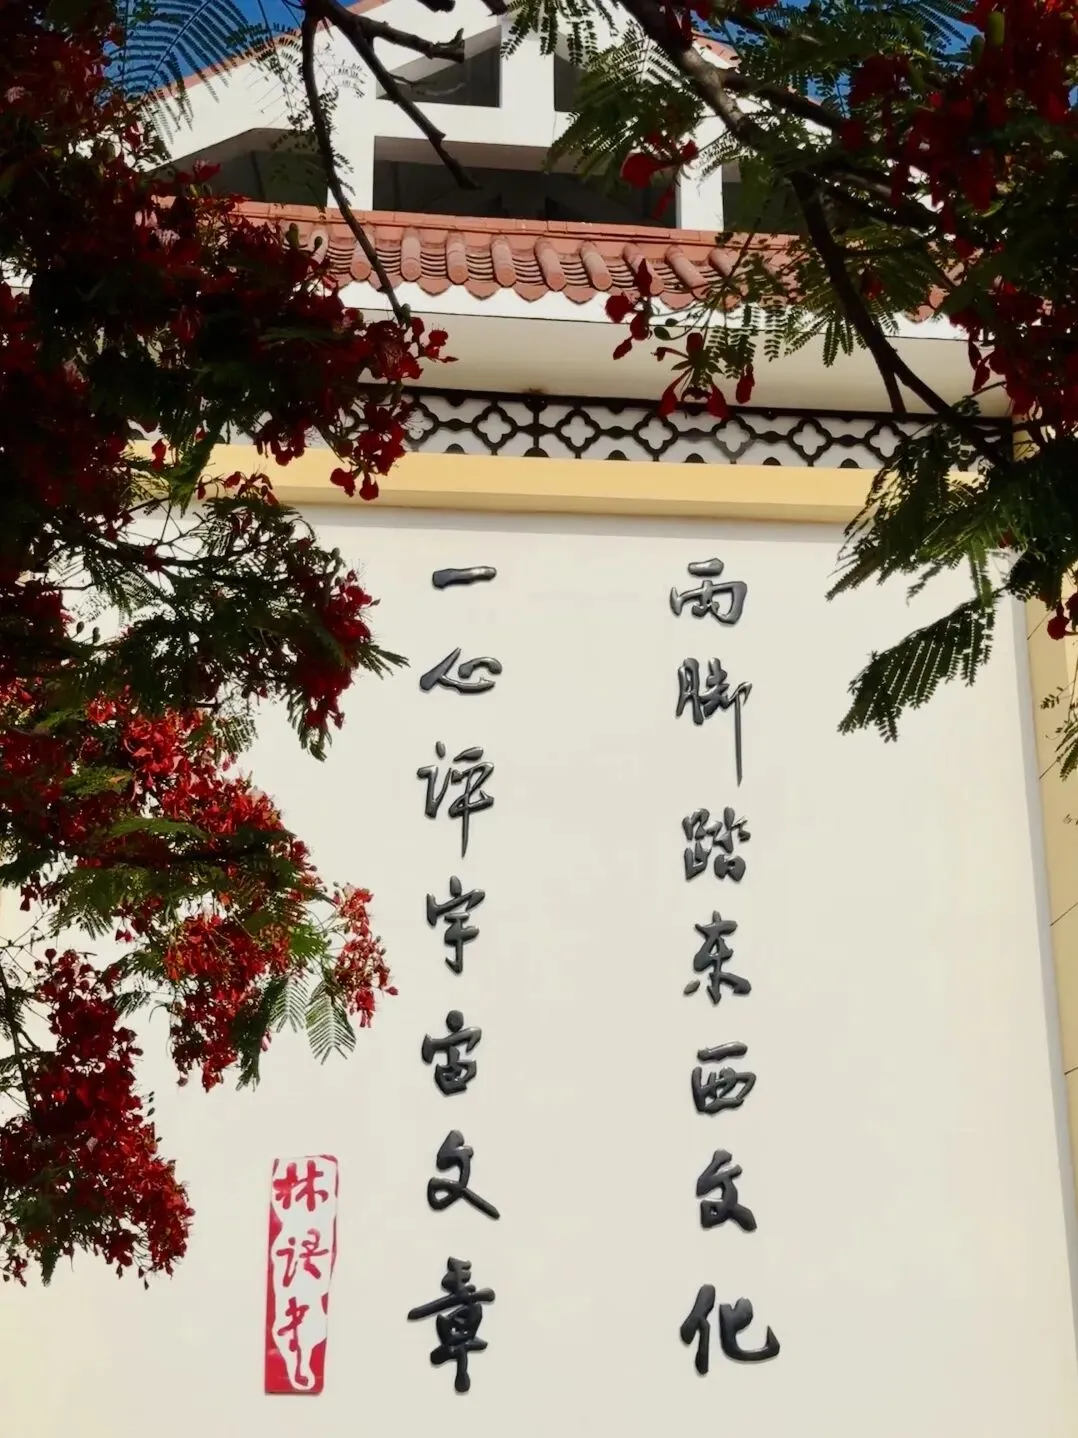 两脚踏东西文化
一心评宇宙文章
林语堂